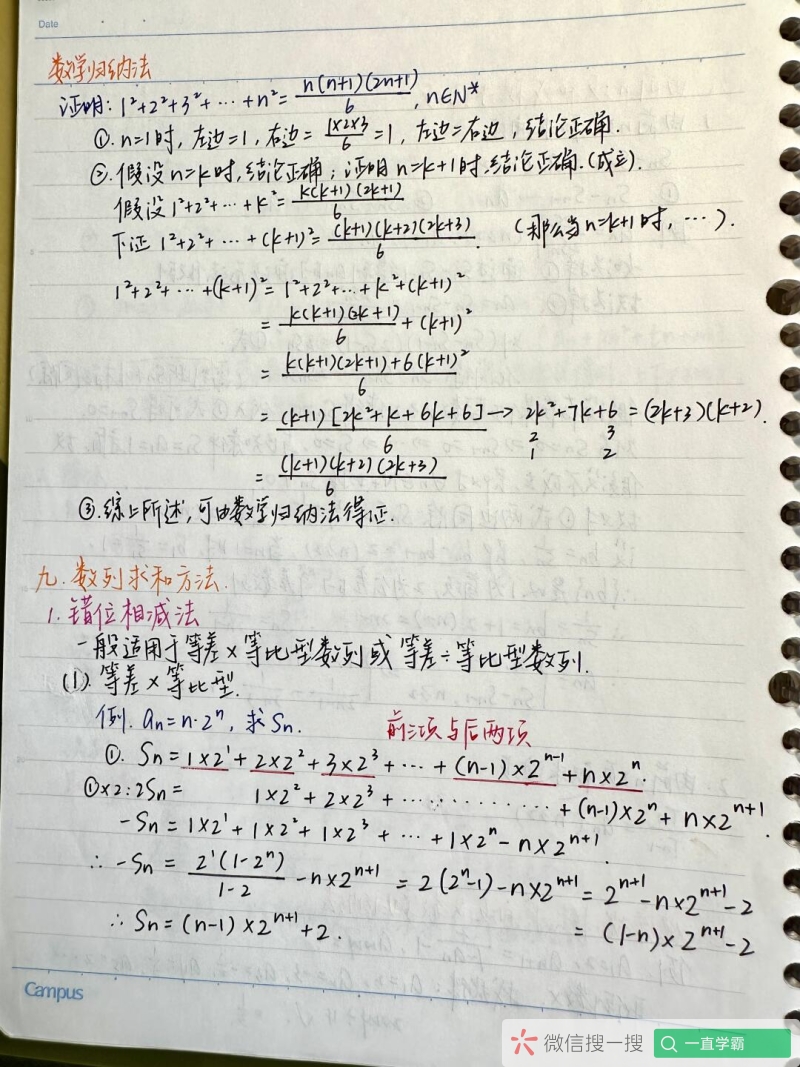 Date
数学归纳法
证明: 1²+2²+3²+…+n²= n(n+1)(2n+1)/6, n∈N*
①. n=1时, 左边=1, 右边= 1×2×3/6 =1, 左边=右边, 结论正确.
②. 假设n=k时, 结论正确; 证明n=k+1时, 结论正确.(成立).
假设 1²+2²+…+k²= k(k+1)(2k+1)/6
下证 1²+2²+…+(k+1)²= (k+1)(k+2)(2k+3)/6. (那么当n=k+1时, …).
1²+2²+…+(k+1)²= 1²+2²+…+k²+(k+1)²
= k(k+1)(2k+1)/6 + (k+1)²
= k(k+1)(2k+1)+6(k+1)²/6
= (k+1)[2k²+k+6k+6]/6 → 2k²+7k+6 = (2k+3)(k+2).
2 3
1 2
= (k+1)(k+2)(2k+3)/6
③. 综上所述, 可由数学归纳法得证.
九. 数列求和方法.
1. 错位相减法
一般适用于等差×等比型数列或等差÷等比型数列.
(1). 等差×等比型.
例. an=n·2ⁿ, 求Sn. 前三项与后两项
①. Sn=1×2¹+2×2²+3×2³+…+(n-1)×2ⁿ⁻¹+n×2ⁿ.
①×2: 2Sn= 1×2²+2×2³+…………+(n-1)×2ⁿ+n×2ⁿ⁺¹.
-Sn=1×2¹+1×2²+1×2³+…+1×2ⁿ-n×2ⁿ⁺¹.
∴ -Sn= 2¹(1-2ⁿ)/1-2 -n×2ⁿ⁺¹ = 2(2ⁿ-1)-n×2ⁿ⁺¹= 2ⁿ⁺¹-n×2ⁿ⁺¹-2
∴ Sn=(n-1)×2ⁿ⁺¹+2. = (1-n)×2ⁿ⁺¹-2
Campus
微信搜一搜 一直学霸